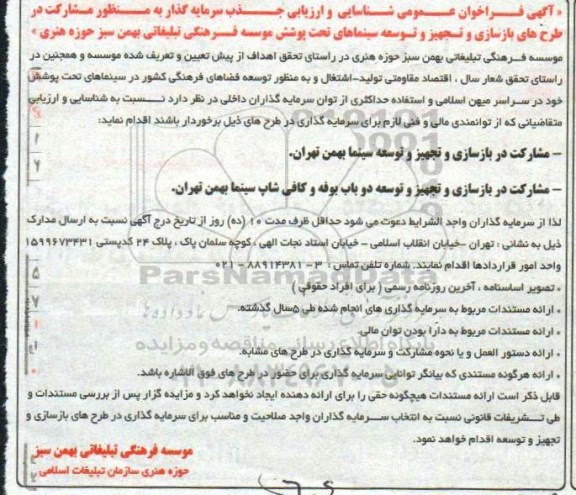 « آگهی فـراخوان عـمومی شناسایی و ارزیابی جـذب سرمایه گذار به مـنظور مشارکت در
طرح های بازسازی و تـجهیز و توسعه سینماهای تحت پوشش موسسه فـرهنگی تبلیغاتی بهمن سبز حوزه هنری »
موسسه فـرهنگی تبلیغاتی بهمن سبز حوزه هنری در راستای تحقق اهداف از پیش تعیین و تعریف شده موسسه و همچنین در
راستای تحقق شعار سال ، اقتصاد مقاومتی تولید-اشتغال و به منظور توسعه فضاهای فرهنگی کشور در سینماهای تحت پوشش
خود در سراسر میهن اسلامی و استفاده حداکثری از توان سرمایه گذاران داخلی در نظر دارد نـسبت به شناسایی و ارزیابی
متقاضیانی که از توانمندی مالی و فنی لازم برای سرمایه گذاری در طرح های ذیل برخوردار باشند اقدام نماید:
– مشارکت در بازسازی و تجهیز و توسعه سینما بهمن تهران.
– مشارکت در بازسازی و تجهیز و توسعه دو باب بوفه و کافی شاپ سینما بهمن تهران.
لذا از سرمایه گذاران واجد الشرایط دعوت می شود حداقل ظرف مدت ۱۰ (ده) روز از تاریخ درج آگهی نسبت به ارسال مدارک
ذیل به نشانی : تهران -خیابان انقلاب اسلامی – خیابان استاد نجات الهی ، کوچه سلمان پاک ، پلاک ۲۴ کدپستی ۱۵۹۹۶۷۳۴۳۱
واحد امور قراردادها اقدام نمایند. شماره تلفن تماس : ۳ - ۸۸۹۱۴۳۸۱ - ۰۲۱
• تصویر اساسنامه ، آخرین روزنامه رسمی ( برای افراد حقوقی )
• ارائه مستندات مربوط به سرمایه گذاری های انجام شده طی ۵سال گذشته.
• ارائه مستندات مربوط به دارا بودن توان مالی.
• ارائه دستور العمل و یا نحوه مشارکت و سرمایه گذاری در طرح های مشابه.
• ارائه هرگونه مستندی که بیانگر توانایی سرمایه گذاری برای حضور در طرح های فوق الاشاره باشد.
قابل ذکر است ارائه مستندات هیچگونه حقی را برای ارائه دهنده ایجاد نخواهد کرد و مزایده گزار پس از بررسی مستندات و
طی تـشریفات قانونی نسبت به انتخاب سـرمایه گذاران واجد صلاحیت و مناسب برای سرمایه گذاری در طرح های بازسازی و
تجهیز و توسعه اقدام خواهد نمود.
موسسه فرهنگی تبلیغاتی بهمن سبز
حوزه هنری سازمان تبلیغات اسلامی
ParsNamadData
پایگاه اطلاع رسانی مناقصه و مزایده